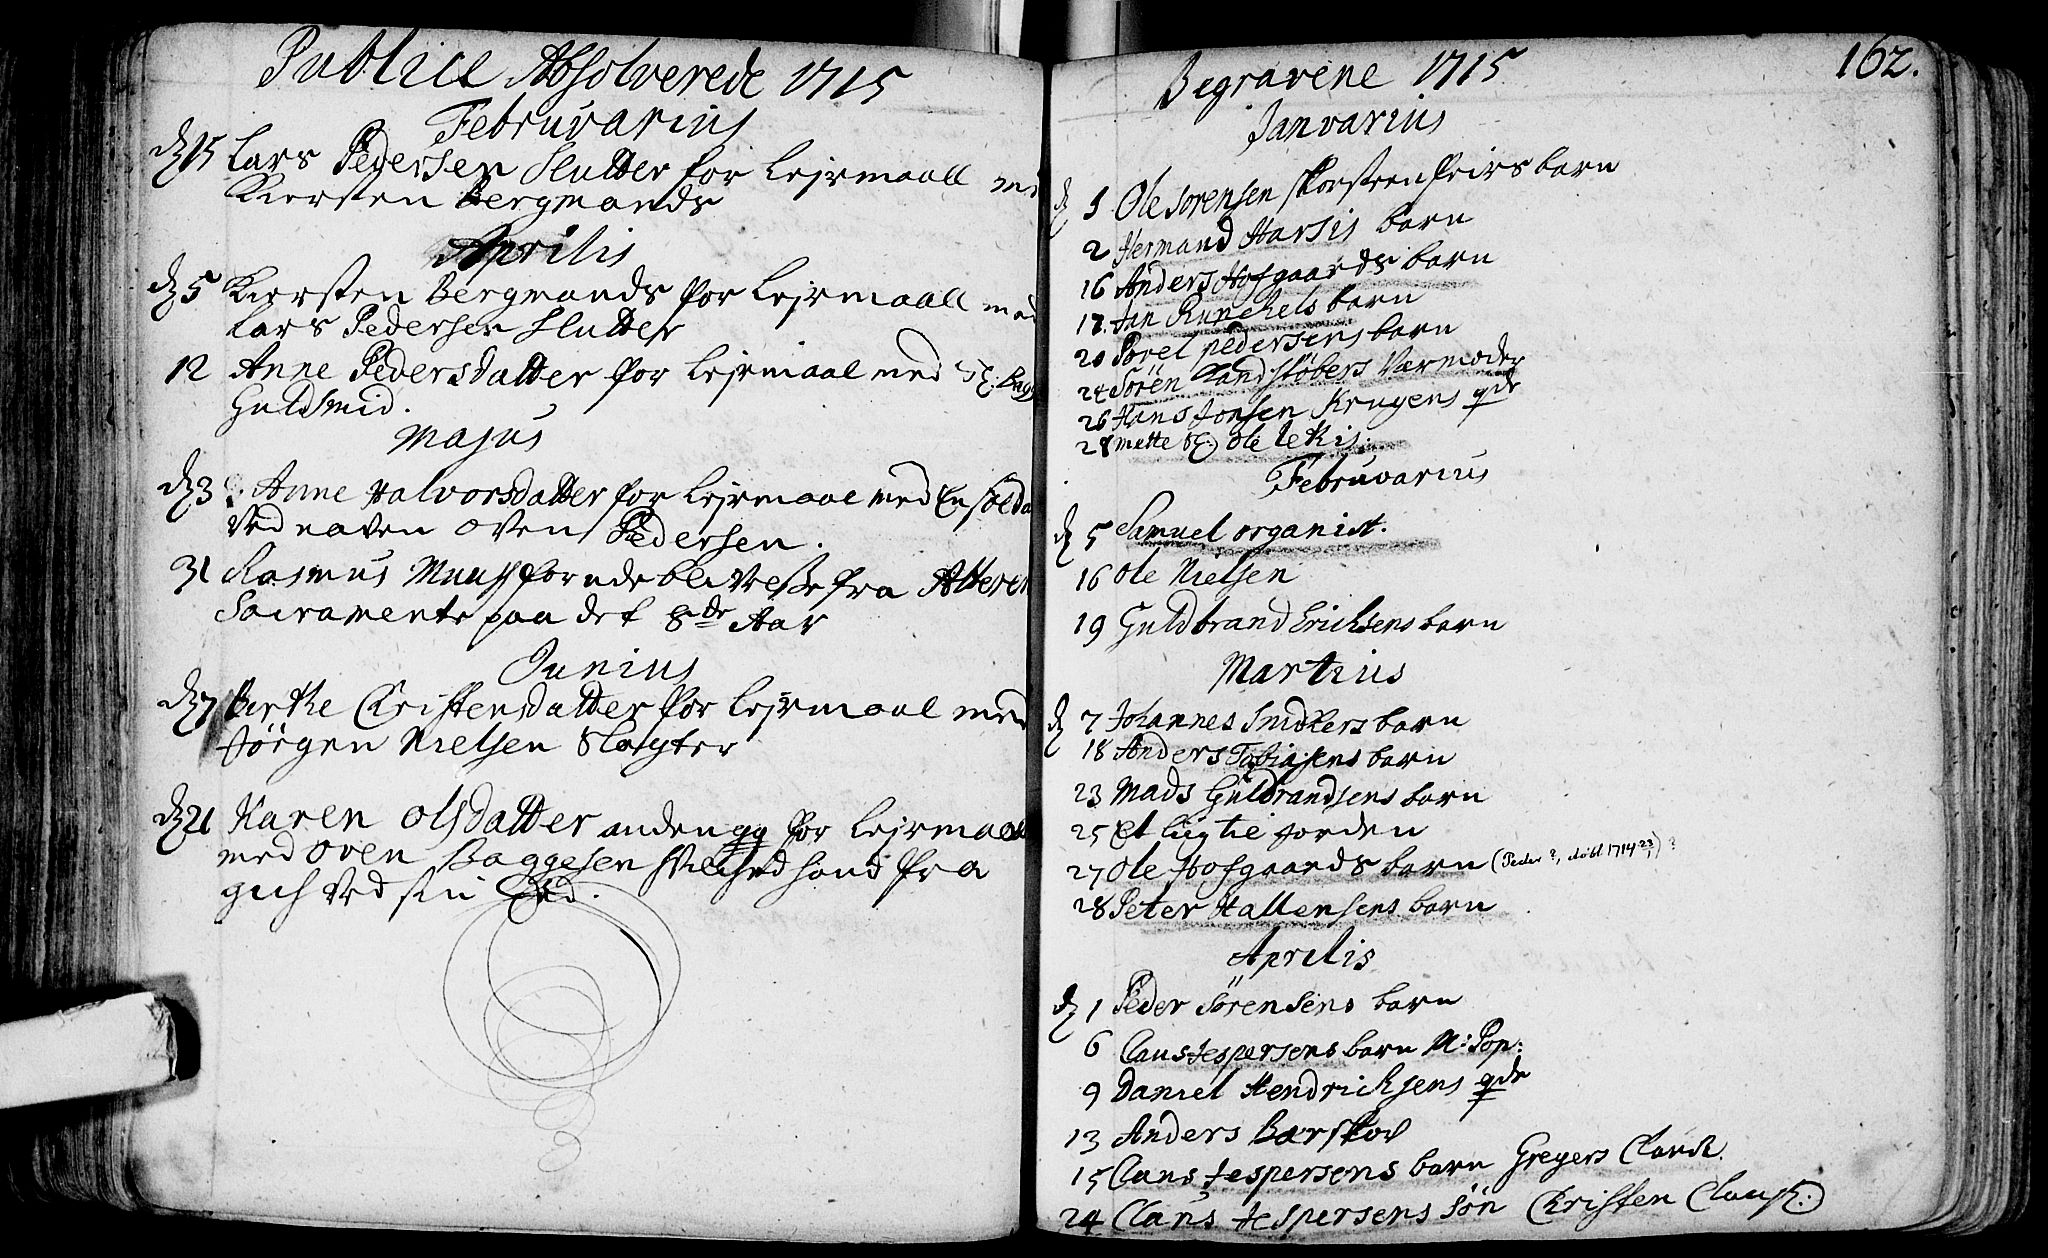 Publice Absolverede 1715
Februvarius
d 15 Lars Pedersen Slutter for Lejrmaall med
Kiersten Bergmands
Aprilis
d 5 Kiersten Bergmands for Lejrmaall med
Lars Pedersen Slutter
12 Anne Pedersdatter for Lejrmaal med
Guldsmid.
Majus
d 3 Anne Halvorsdatter for Lejrmaal med En
ved naven Oven Pedersen.
31 Rasmus for udeblivelse fra
Sacramente paa det 8de Aar
Junius
d 7 Birthe Christensdatter for Lejrmaal med
Jørgen Nielsen Slagter
d 21 Karen Olsdatter anden gg for Lejrmaal
med Oven Baggesen hand fra
gich Ved sin Eed.
Begravene 1715
162.
Janvarius
d 1 Ole Sørensen Skorsteenfeirs barn
2 Hermand Harsis barn
16 Anders Hofgaards barn
17. Jan Runchels barn
20 Povel pedersens barn
24 Sören Kandstöbers Værmoder
26 Hans Jonsen Krugens qde
28 Mette Ole
Februvarius
d 5 Samuel organist.
16 Ole Nielsen
19 Guldbrand Erichsens barn
Martius
d 7 Johannes Snidkers barn
18 Anders Tobiasens barn
23 Mads Guldbrandsens barn
25 Et lig
27 Ole Hofgaards barn (Peder?, døbt 1714 23/1)?
28 Peter Hallensens barn
Aprilis
d 1 Peder Sörensens barn
6 Claus Jespersens barn N: Pop:
9 Daniel Hendrichsens qde
13 Anders Bærskov
15 Claus Jespersens barn Gregers
24 Claus Jespersens Sön Christen